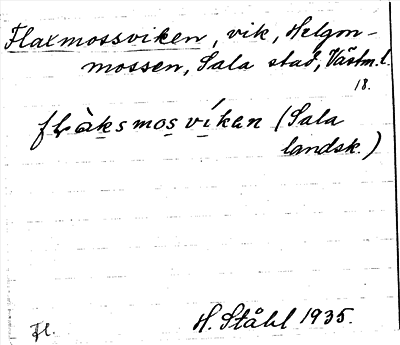 Flaxmossviken, vik, Helgon-
mossen, Sala stad, Västm. l.
18.
flàksmosvíkan (Sala
landsk.)
Fl.
H. Ståhl 1935.